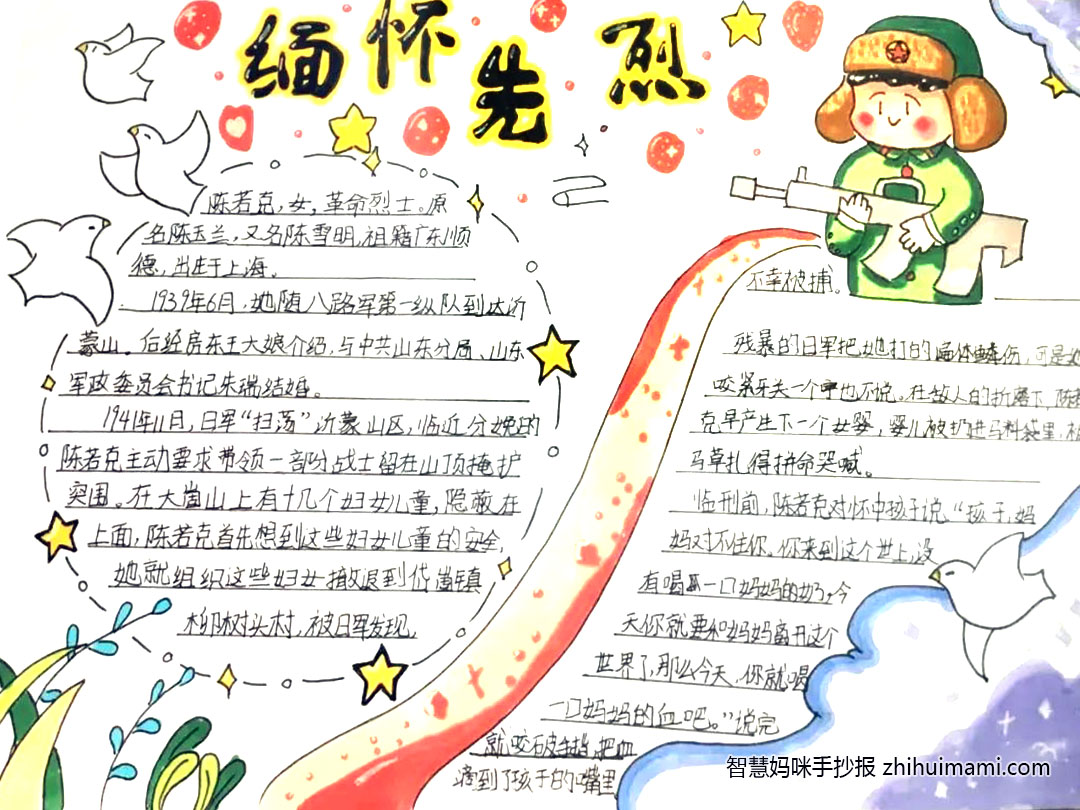 缅怀先烈
陈若克,女,革命烈士。原
名陈玉兰,又名陈雪明,祖籍广东顺
德,出生于上海。
1939年6月,她随八路军第一纵队到达沂
蒙山。后经房东王大娘介绍,与中共山东分局、山东
军政委员会书记朱瑞结婚。
1941年11月,日军“扫荡”沂蒙山区,临近分娩的
陈若克主动要求带领一部份战士留在山顶掩护
突围。在大崮山上有十几个妇女儿童,隐蔽在
上面,陈若克首先想到这些妇女儿童的安全,
她就组织这些妇女撤退到岱崮镇
柳树头村,被日军发现,
不幸被捕。
残暴的日军把她打的遍体鳞伤,可是她
咬紧牙关一个字也不说。在敌人的折磨下,陈若
克早产生下一个女婴,婴儿被扔进马料袋里,被
马草扎得拼命哭喊。
临刑前,陈若克对怀中孩子说“孩子,妈
妈对不住你。你来到这个世上,没
有喝一口妈妈的奶,今
天你就要和妈妈离开这个
世界了,那么今天,你就喝
一口妈妈的血吧。”说完
就咬破手指,把血
滴到了孩子的嘴里
智慧妈咪手抄报 zhihuimami.com